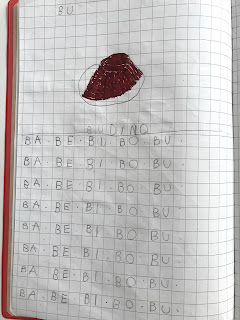 BU
BUDINO
BA · BE · BI · BO · BU ·
BA · BE · BI · BO · BU ·
BA · BE · BI · BO · BU ·
BA · BE · BI · BO · BU ·
BA · BE · BI · BO · BU ·
BA · BE · BI · BO · BU ·
BA · BE · BI · BO · BU ·
BA · BE · BI · BO · BU ·